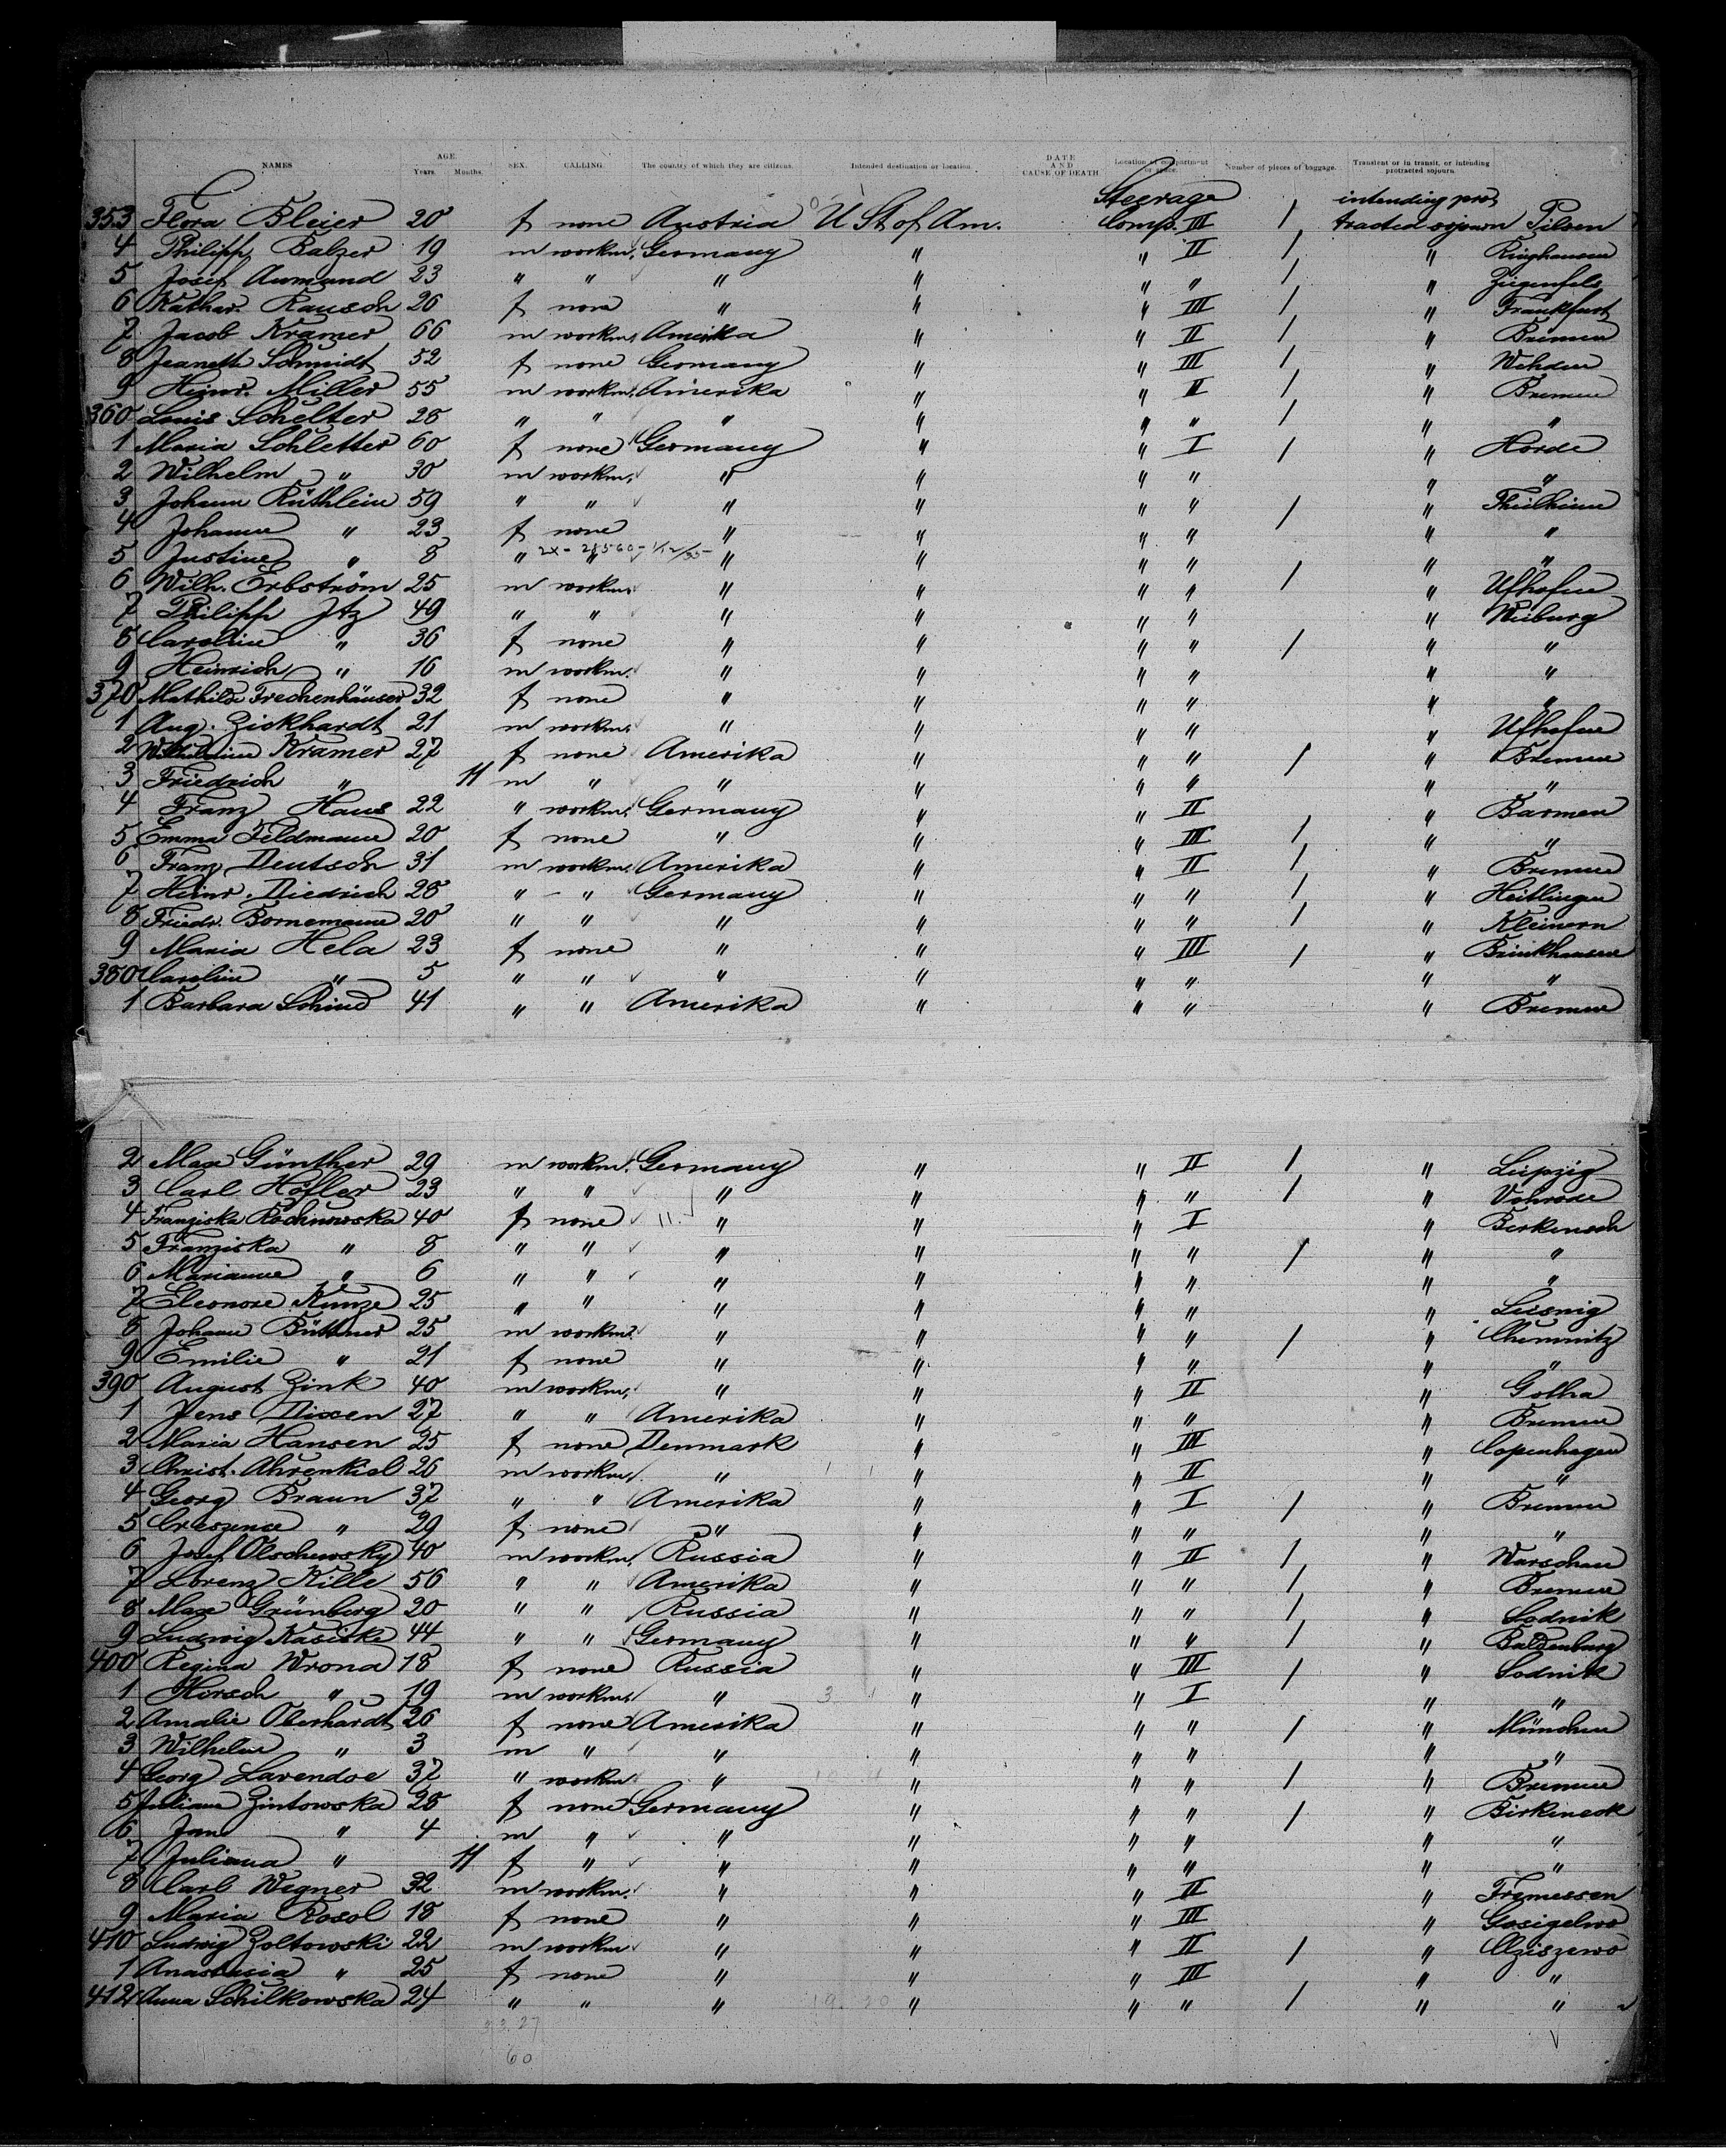 NAMES AGE. Years. Months. SEX. CALLING. The country of which they are citizens. Intended destination or location. DATE AND CAUSE OF DEATH Location of compartment or space. Number of pieces of baggage. Transient or in transit, or intending protracted sojourn.
353 Flora Bleier 20 f none Austria U St of Am. Steerage Comp. III 1 intending protracted sojourn Pilsen
4 Philipp Balzer 19 m workm. Germany " " II 1 " Ringhausen
5 Josef Aumund 23 " " " " " " 1 " Ziegenfels
6 Kathar. Rausch 26 f none " " " III 1 " Frankfurt
7 Jacob Kramer 66 m workm. Amerika " " II 1 " Bremen
8 Jeanette Schmidt 52 f none Germany " " III 1 " Wehden
9 Heinr. Miller 55 m workm. Amerika " " II 1 " Bremen
360 Louis Schelter 28 " " " " " " 1 " "
1 Maria Schletter 60 f none Germany " " I 1 " Hörde
2 Wilhelm " 30 m workm. " " " " " "
3 Johann Rüthlein 59 " " " " " " 1 " Theilheim
4 Johanne " 23 f none " " " " " "
5 Justine " 8 " " " " " " " "
6 Wilh. Erbström 25 m workm. " " " " 1 " Ufhofen
7 Philipp Itz 49 " " " " " " " Weiburg
8 Caroline " 36 f none " " " " 1 " "
9 Heinrich " 16 m workm. " " " " " "
370 Mathilde Frechenhäuser 32 f none " " " " " "
1 Aug. Zickhardt 21 m workm. " " " " " Ufhofen
2 Wilhelmine Kramer 27 f none Amerika " " " 1 " Bremen
3 Friedrich " 11 m " " " " " " "
4 Franz Haus 22 " workm. Germany " " II " Barmen
5 Emma Feldmann 20 f none " " " III 1 " "
6 Franz Deutsch 31 m workm. Amerika " " II 1 " Bremen
7 Heinr. Diedrich 28 " " Germany " " " 1 " Heitlingen
8 Friedr. Bornemann 20 " " " " " " 1 " Kleinern
9 Maria Hela 23 f none " " " III 1 " Brinkhausen
380 Caroline " 5 " " " " " " " "
1 Barbara Schind 41 " " Amerika " " " " Bremen
2 Max Günther 29 m workm. Germany " " II 1 " Leipzig
3 Carl Höfler 23 " " " " " " 1 " Vohrose
4 Franziska Rochnowska 40 f none " " " I " Berkensch
5 Franziska " 8 " " " " " " 1 " "
6 Marianne " 6 " " " " " " " "
7 Eleonore Kunze 25 " " " " " " " Leisnig
8 Johann Büttner 25 m workm. " " " " 1 " Chemnitz
9 Emilie " 21 f none " " " " " "
390 August Zink 40 m workm. " " " II " Gotha
1 Jens Dixen 27 " " Amerika " " " " Bremen
2 Maria Hansen 25 f none Denmark " " III " Copenhagen
3 Christ. Ahrenkiel 26 m workm. " " " II " "
4 Georg Braun 37 " " Amerika " " I 1 " Bremen
5 Creszence " 29 f none " " " " " "
6 Josef Olschewsky 40 m workm. Russia " " II 1 " Warschau
7 Lorenz Kille 56 " " Amerika " " " 1 " Bremen
8 Max Grünberg 20 " " Russia " " " 1 " Sodnik
9 Ludwig Kasiske 44 " " Germany " " " 1 " Baldenburg
400 Regina Wrona 18 f none Russia " " III 1 " Sodnik
1 Hirsch " 19 m workm. " " " I " "
2 Amalie Oberhardt 26 f none Amerika " " " 1 " München
3 Wilhelm " 3 m " " " " " " "
4 Georg Lavendoe 37 " workm. " " " " 1 " Bremen
5 Juliane Zintowska 28 f none Germany " " " 1 " Birkineck
6 Jan " 4 m " " " " " " "
7 Juliana " 11 f " " " " " " "
8 Carl Wegner 32 m workm. " " " II " Tremessen
9 Maria Rosol 18 f none " " " III " Gosigelwo
410 Ludwig Zoltowski 22 m workm. " " " II 1 " Cziszewo
1 Anastasia " 25 f none " " " III " "
412 Anna Schilkowska 24 " " " " " " 1 " "
3 3. 27
60